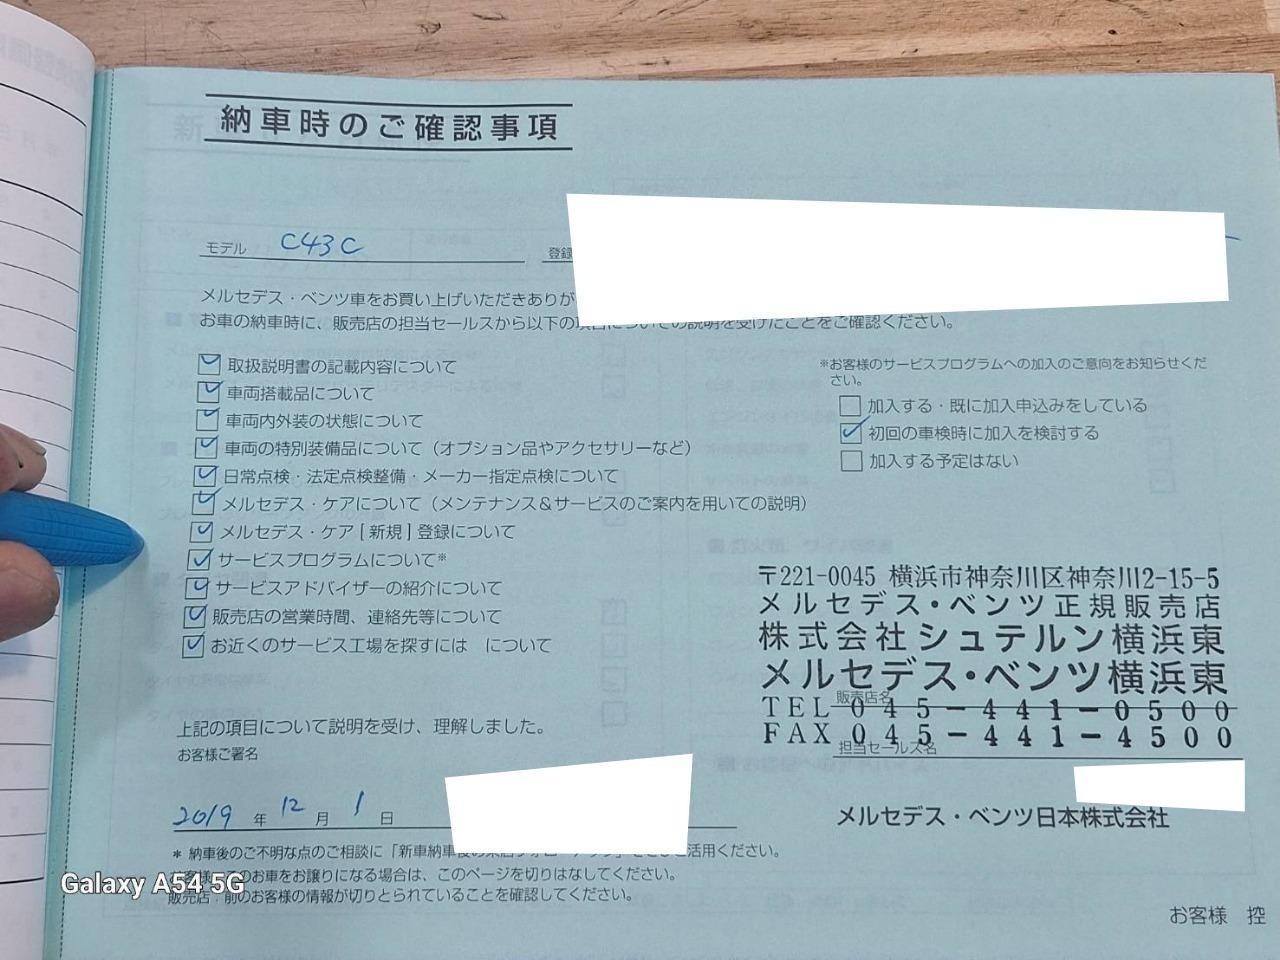 納車時のご確認事項
モデル C43C 登録
メルセデス・ベンツ車をお買い上げいただきありが
お車の納車時に、販売店の担当セールスから以下の項目についての説明を受けたことをご確認ください。
取扱説明書の記載内容について
車両搭載品について
車両内外装の状態について
車両の特別装備品について（オプション品やアクセサリーなど）
日常点検・法定点検整備・メーカー指定点検について
メルセデス・ケアについて（メンテナンス＆サービスのご案内を用いての説明）
メルセデス・ケア［新規］登録について
サービスプログラムについて※
サービスアドバイザーの紹介について
販売店の営業時間、連絡先等について
お近くのサービス工場を探すには について
※お客様のサービスプログラムへの加入のご意向をお知らせくだ
さい。
加入する・既に加入申込みをしている
初回の車検時に加入を検討する
加入する予定はない
〒221-0045 横浜市神奈川区神奈川2-15-5
メルセデス・ベンツ正規販売店
株式会社シュテルン横浜東
メルセデス・ベンツ横浜東
販売店名
TEL 045-441-0500
FAX 045-441-4500
担当セールス名
メルセデス・ベンツ日本株式会社
上記の項目について説明を受け、理解しました。
お客様ご署名
2019 年 12 月 1 日
＊ 納車後のご不明な点のご相談に「新車納車後の ご活用ください。
お車をお譲りになる場合は、このページを切りはなしてください。
販売店：前のお客様の情報が切りとられていることを確認してください。
お客様 控
Galaxy A54 5G